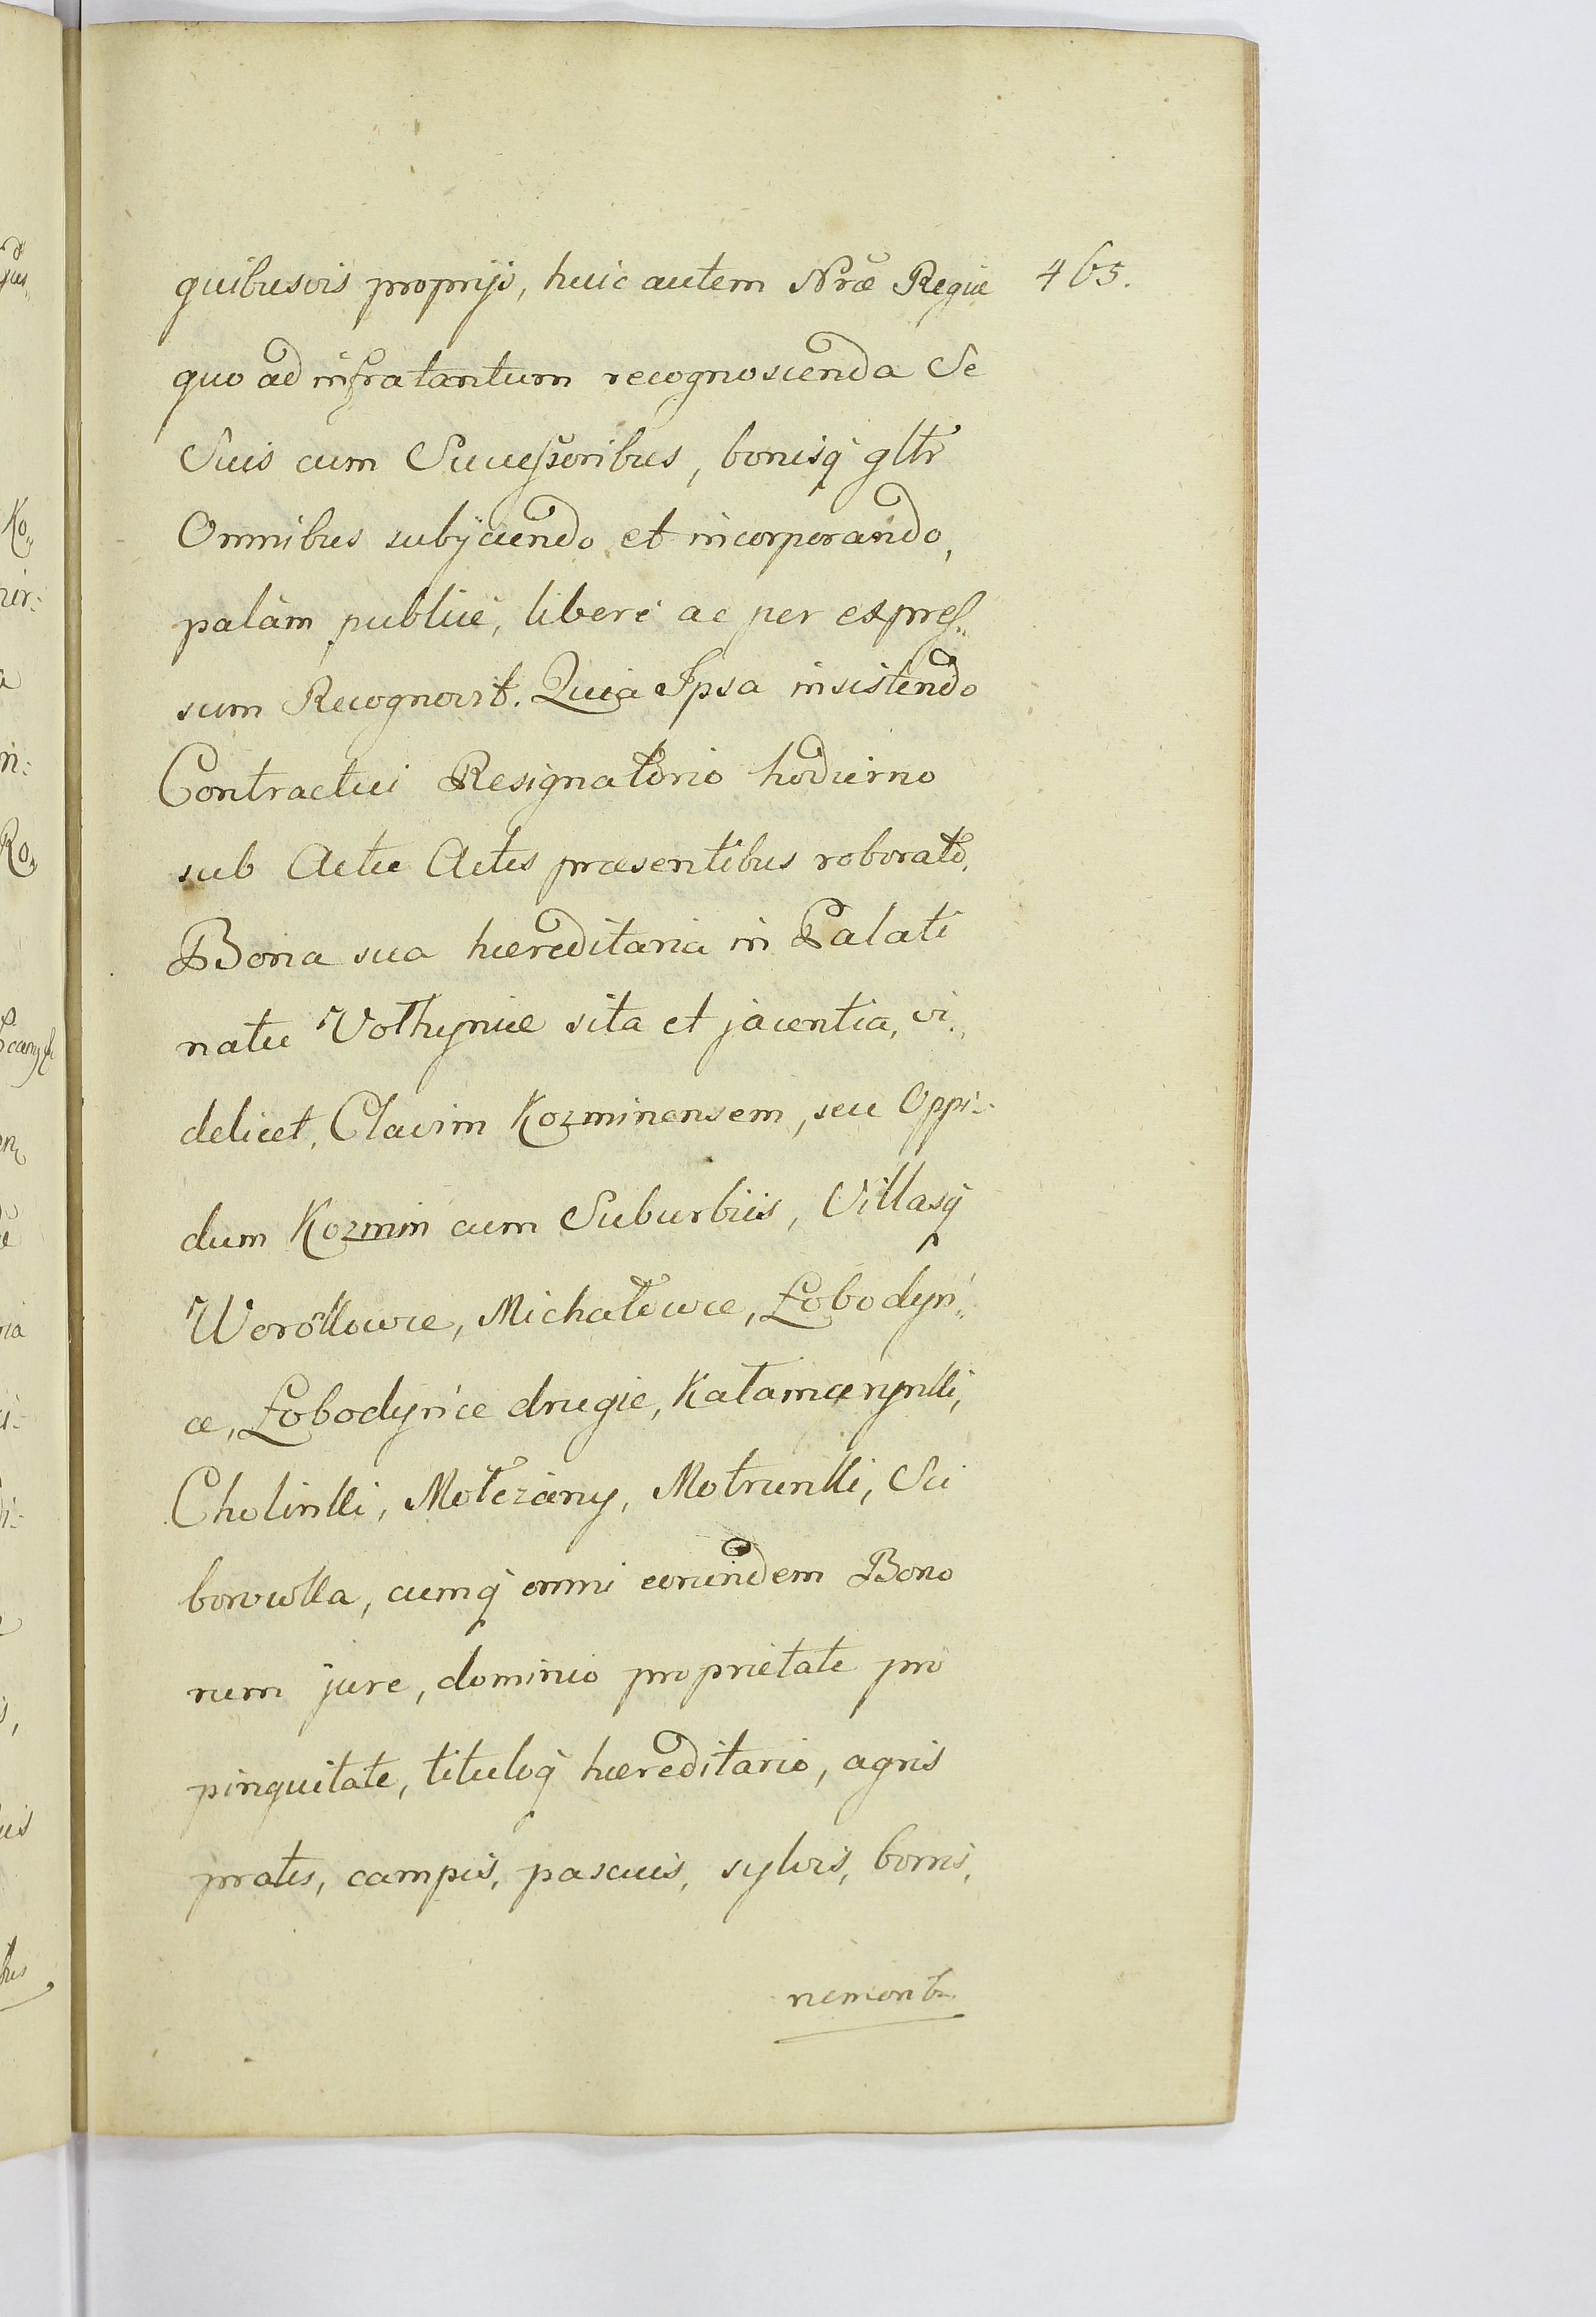 quibusvis proprijs, huic autem Nrae Regiae 465.
quo ad infratantum recognoscenda Se
Suis cum Successoribus, bonisq́ gltr
Omnibus subijciendo et incorporando,
palàm publicè, liberè ac per expres„
sum Recognovit. Quia Ipsa insistendo
Contractui Resignatorio hodierno
sub Actu Actis praesentibus roborato,
Bona sua haereditaria in Palati
natu Volhyniae sita et jacentia, vi„
delicet, Clavim Kozminensem, seu Oppi„
dum Kozmin cum Suburbiis, Villasq́
Worołłowce, Michałowce, Łobodyń„
ce, Łobodyńce drugie, Kałamarynki,
Cholinki, Mołczany, Motrunki, Sci
borowka, cumq́ omni eorundem Bono
rum jure, dominio proprietate pro
pinquitate, tituloq́ haereditario, agris
pratis, campis, pascuis, sylvis, borris,
nemorib.